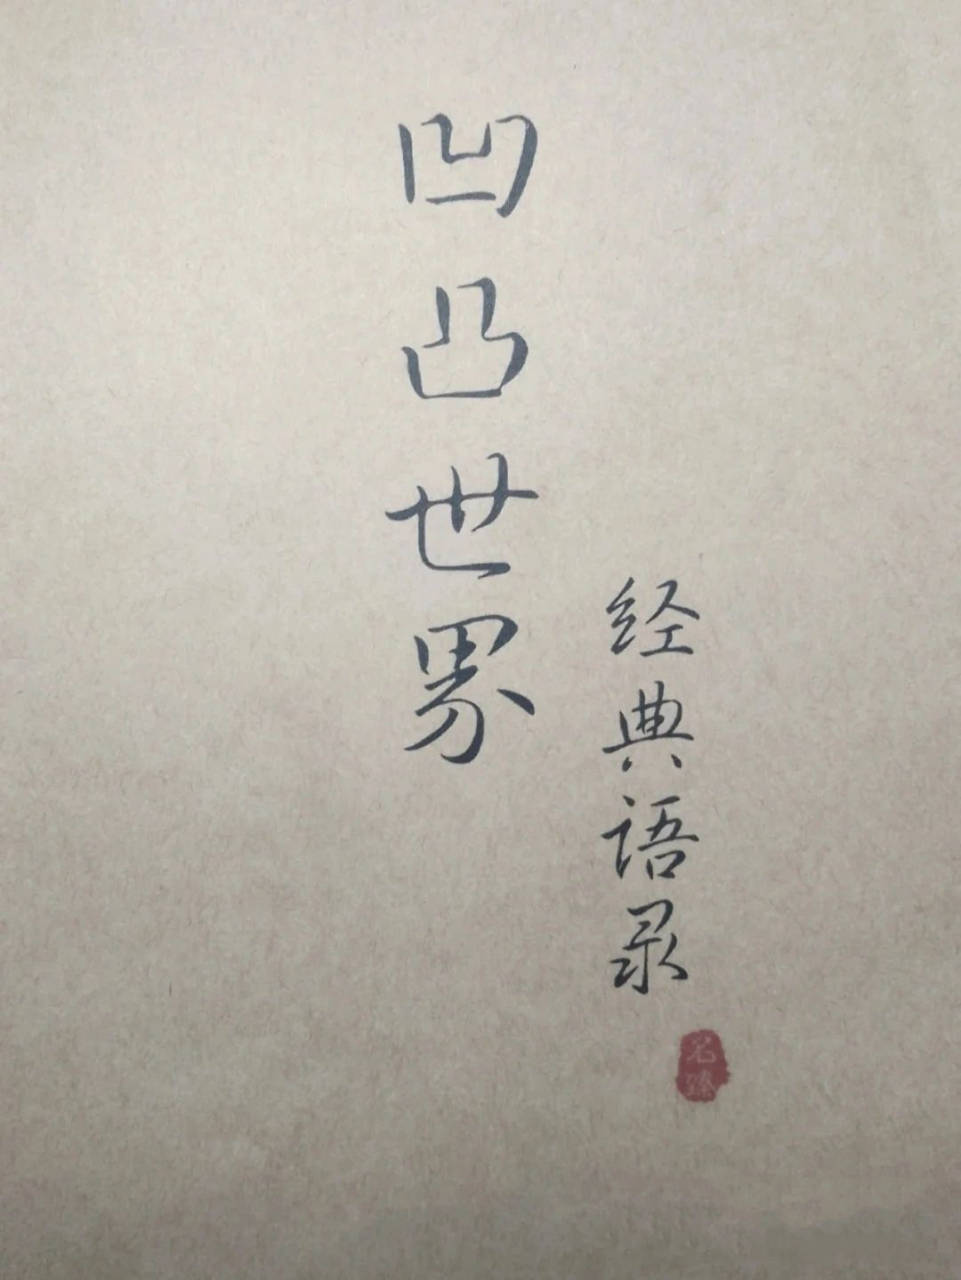 凹凸世界
经典语录
名臻